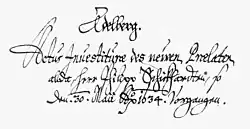 Adelberg.
Actus Investituræ des neuen Prelaten
alda Herr Philipp Schickhardten, so
den 30. Maii Ao 1634. Vorgangen.